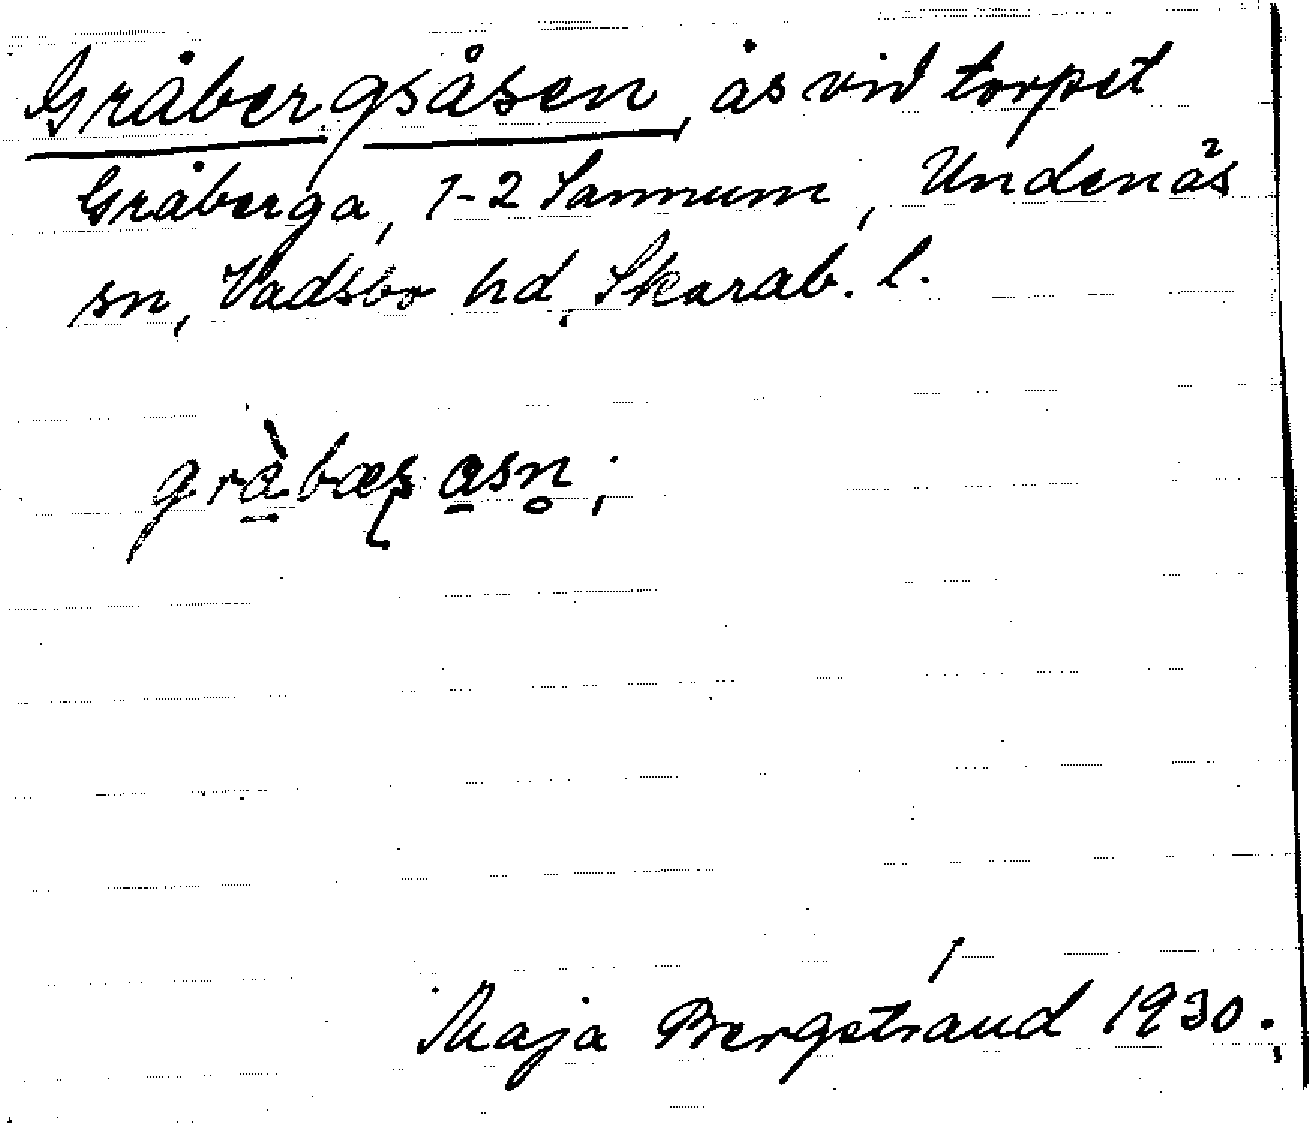 Gråbergsåsen, ås vid torpet
Gråberga, 1-2 Sannum, Undenäs
sn, Vadsbo hd, Skarab. l.
gràbæʂ asn̥;
Maja Bergstrand 1930.